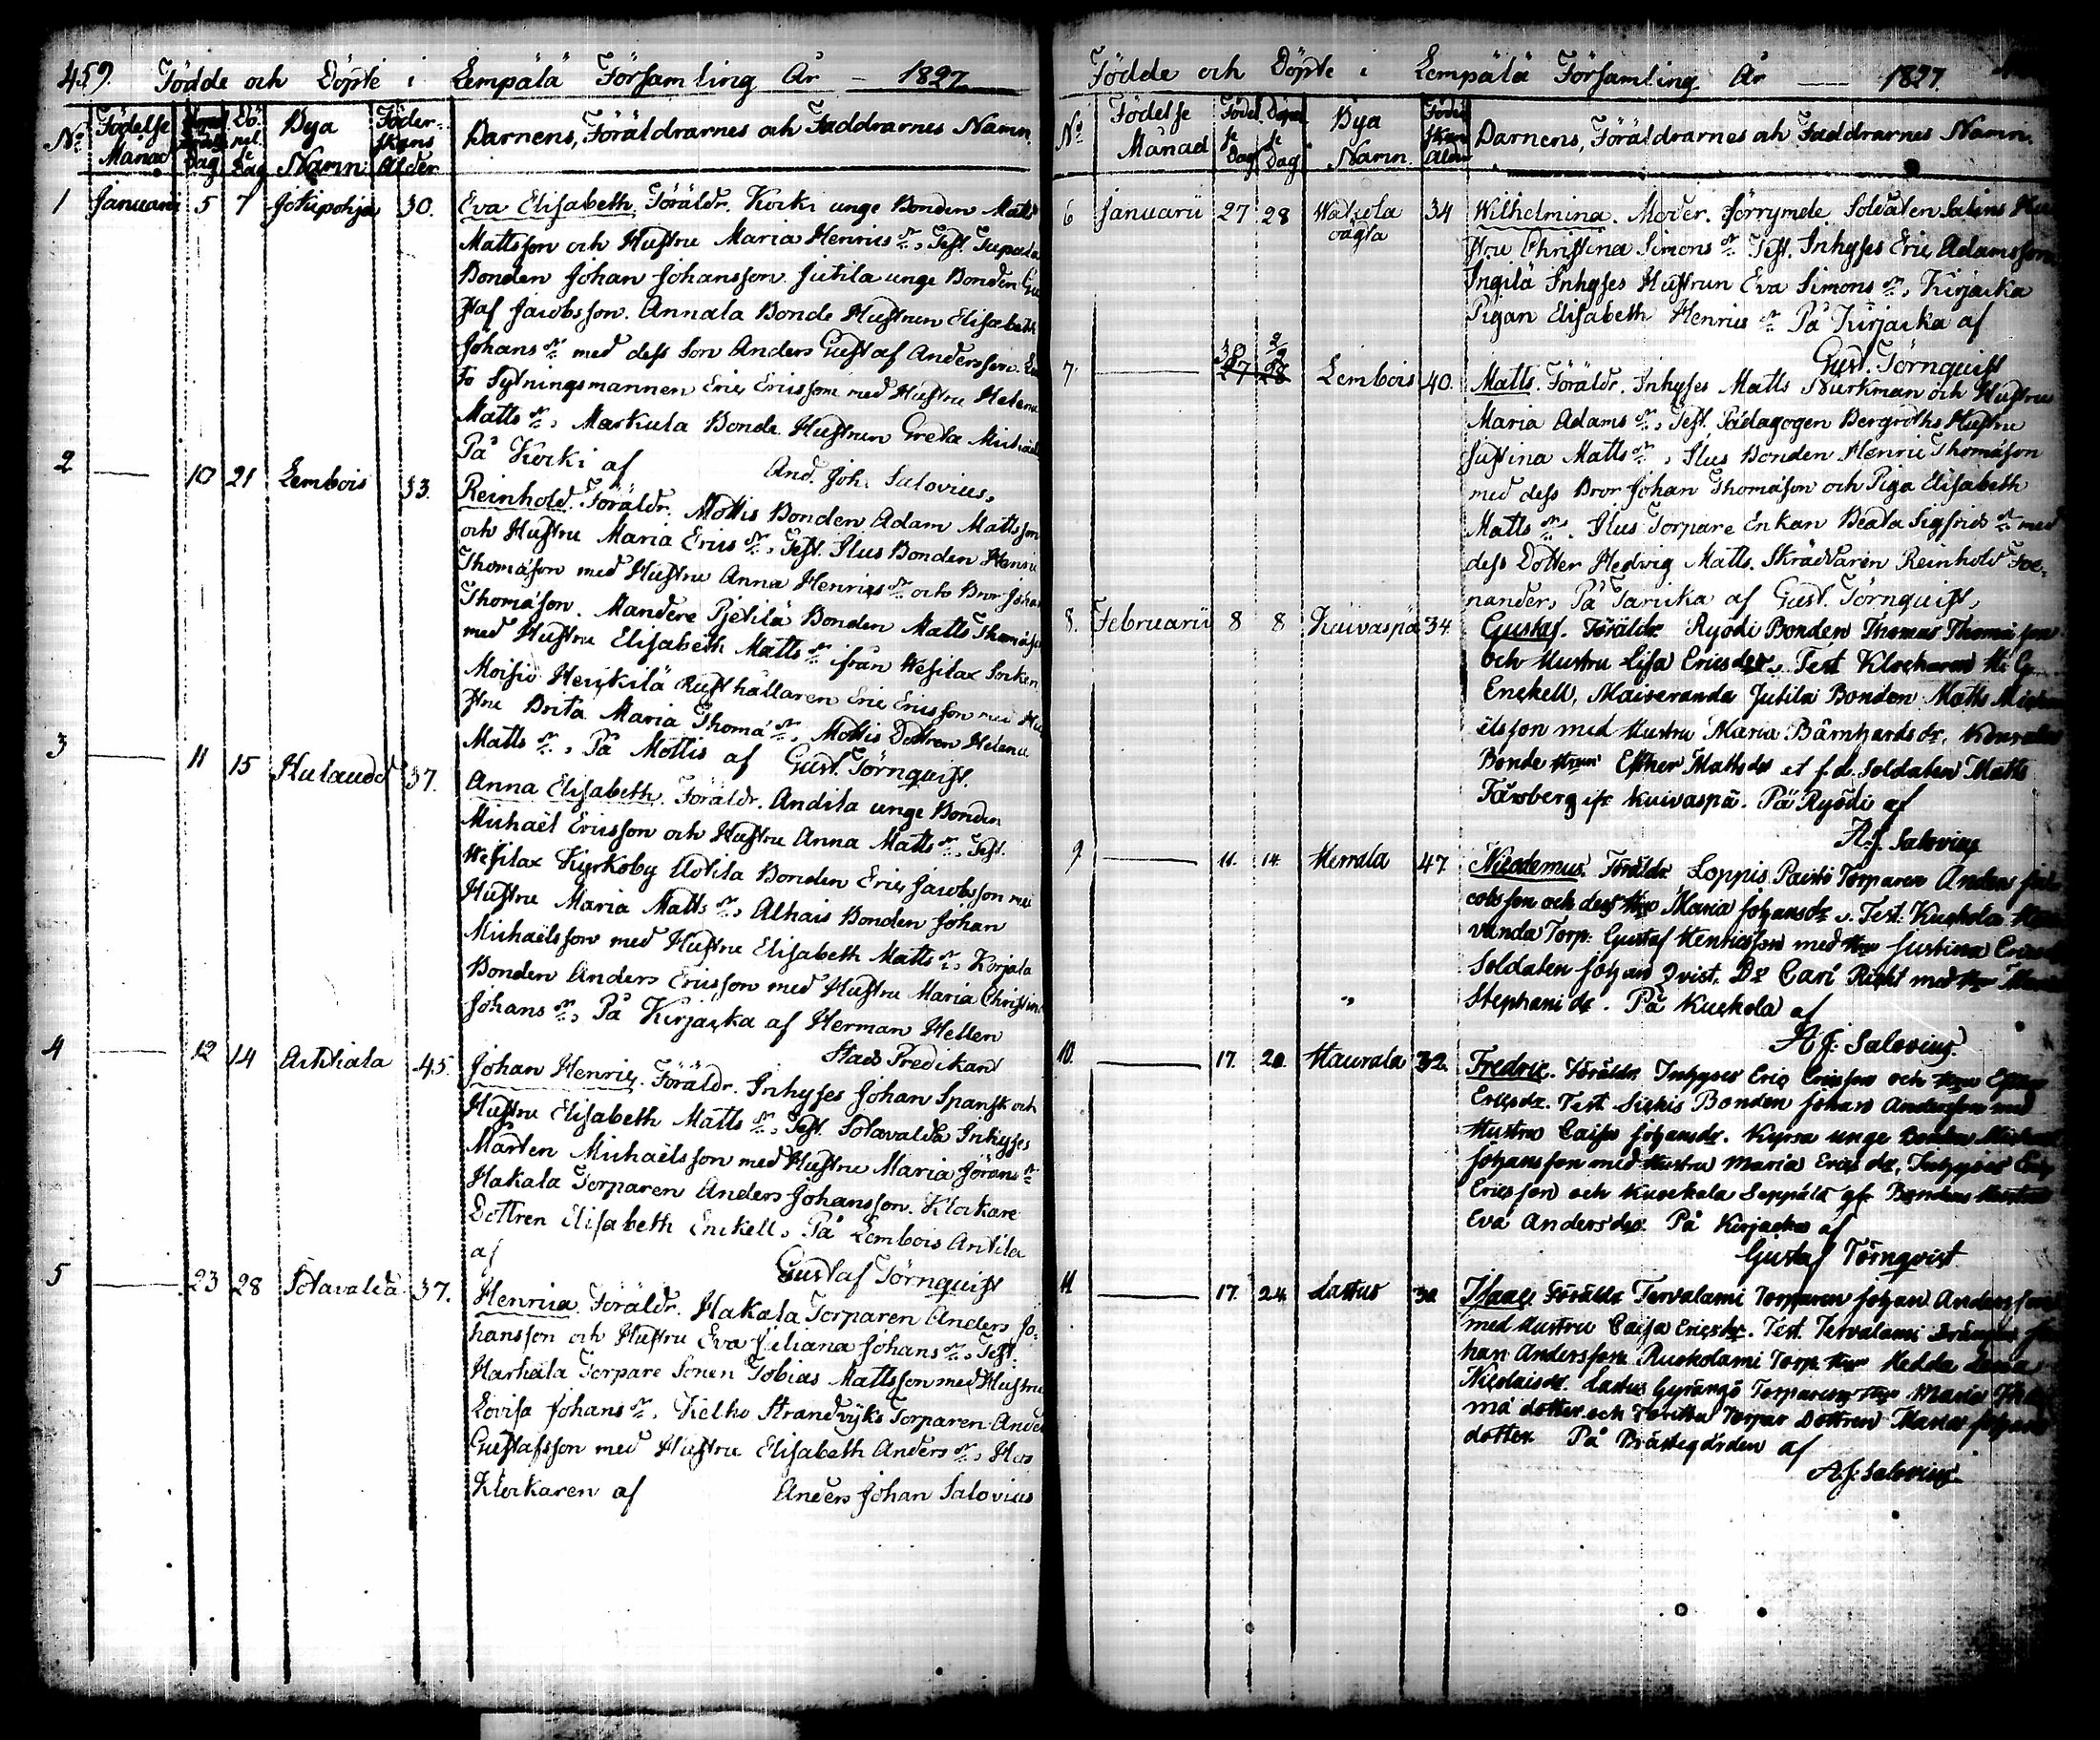 459. Födde och Döpte i Lempälä Församling År – 1827
No Födelse Månad Dag Döpel. Dag Bya Namn Föder-skans Ålder Barnens, Föräldrarnes och Faddrarnes Namn.
1 Januarii 5 7 Jokipohja 30. Eva Elisabeth. Föräldr. Korki unge Bonden Matts
Mattsson och Hustru Maria Henrics dr, Test.
Bonden Johan Johansson Jutila unge Bonden Gu
staf Jacobsson. Annala Bonde Hustrun Elisabeth
Johans dr med dess Son Anders Gustaf Andersson.
Sytningsmannen Eric Ericsson med Hustru Helena
Matts dr, Markula Bonde Hustrun Greta
På Korki af And. Joh. Salovius.
2 — 10 21 Lembois 33. Reinhold. Föräldr. Mottis Bonden Adam Mattsson
och Hustru Maria Erics dr, Test. Ilus Bonden Henric
Thomasson med Hustru Anna Henrics dr och Bror Johan
Thomasson. Mandere Pjetilä Bonden Matts
med Hustru Elisabeth Matts dr ifrån Wesilax Socken
Moisio Heickilä Rusthållaren Eric Ericsson med Hu
stru Brita Maria Thomæ dr, Mottis Dottren Helena
Matts dr, På Mottis af Gust. Törnquist.
3 — 11 15 Hulaudd 37. Anna Elisabeth. Föräldr. Andila unge Bonden
Michaël Ericsson och Hustru Anna Matts dr, Test.
Wesilax Kyrkoby Bonden Eric Jacobsson med
Hustru Maria Matts dr, Alhais Bonden Johan
Michaëlsson med Hustru Elisabeth Matts dr, Korjala
Bonden Anders Ericsson med Hustru Maria Christina
Johans dr, På Kirjacka af Herman Hellen
Stads Predikand
4 — 12 14 Ahtiala 45. Johan Henric. Föräldr. Inhyses Johan Spansk och
Hustru Elisabeth Matts dr, Test. Sotavalda Inhyses
Mårten Michaëlsson med Hustru Maria Görans dr
Hakala Torparen Anders Johansson. Klockare
Dottren Elisabeth Enckell, På Lembois Antila
af Gustaf Törnquist
5 — 23 28 Sotavalda 37. Henrica. Föräldr. Hakala Torparen Anders Jo-
hansson och Hustru Eva Juliana Johans dr, Test.
Harhala Torpare Sonen Tobias Mattsson med Hustru
Lovisa Johans dr, Kelho Strandvyks Torparen
Gustafsson med Hustru Elisabeth Anders dr, Hos
Klockaren af Anders Johan Salovius
Födde och Döpte i Lempälä Församling År — 1827.
No Födelse Månad Födelse Dag Döpelse Dag Bya Namn. Föderskans Ålder Barnens, Föräldrarnes och Faddrarnes Namn.
6 Januarii 27 28 Wakiola 34 Wilhelmina. Moder. förrymde Soldaten Salins Hu
stru Christina Simons dr Test. Inhyses Eric Adamsson
Ingilä Inhyses Hustrun Eva Simons dr, Kirjacka
Pigan Elisabeth Henrics dr På Kirjacka af
Gust. Törnquist
7 — 30 2/2 Lembois 40. Matts. Föräldr. Inhyses Matts Nurkman och Hustru
Maria Adams dr, Test. Pädagogen Bergroths Hustru
Justina Matts dr, Ilus Bonden Henric Thomasson
med dess Bror Johan Thomasson och Piga Elisabeth
Matts dr. Ilus Torpare Enkan Beata Sigfrids dr med
dess Dotter Hedvig Matts. Skräddaren Reinhold
nander, På Taricka af Gust. Törnquist,
8. Februarii 8 8 Kuivaspä 34. Gustaf. Föräldr. Ryödi Bonden Thomas Thomasson
och Hustru Lisa Ericsdr. Test Klockaren
Enckell, Maiseranda Jutila Bonden Matts
elsson med Hustru Maria Bärnhardsdr,
Bonde Hrun Esther Mattsdr et f.d. Soldaten Matts
Färsberg ifr Kuivaspä. På Ryödi af
A.J. Salovius
9. — 11. 14. Herrala 47 Nicodemus. Föräldr Loppis Torparen Anders Ja
cobsson och dess Hru Maria Johansdr. Test. Kuckola
vanda Torp. Gustaf Henricsson med Hru Justina
Soldaten Johan Qvist. Dr Carl med Hru
Stephani dr. På Kuckola af
A J: Salovius.
10. — 17. 20. Haurala 32. Fredric. Föräldr. Inhyses Eric Ericsson och Hru
Ericsdr. Test Sickis Bonden Johan Andersson med
Hustru Caisa Johansdr. Kyrsa unge Bonden
Johansson med Hustru Maria Erics dr, Inhyses
Ericsson och Kuockala Seppälä Bondens Hustru
Eva Andersdr. På Kirjacka af
Gustaf Törnqvist
11 — 17. 24. Lastus 30. Isaac. Föräldr Tervalami Torparen Johan Andersson
med Hustru Caisa Ericsdr. Test. Tervalami Jo
han Andersson Ruokolami Torp. Hru Hedda
Nicolaidr. Lastus Torparens Hru Maria
mæ dotter och Torpar Dottren Maria Johans
dotter På Prästegården af
A.J: Salovius